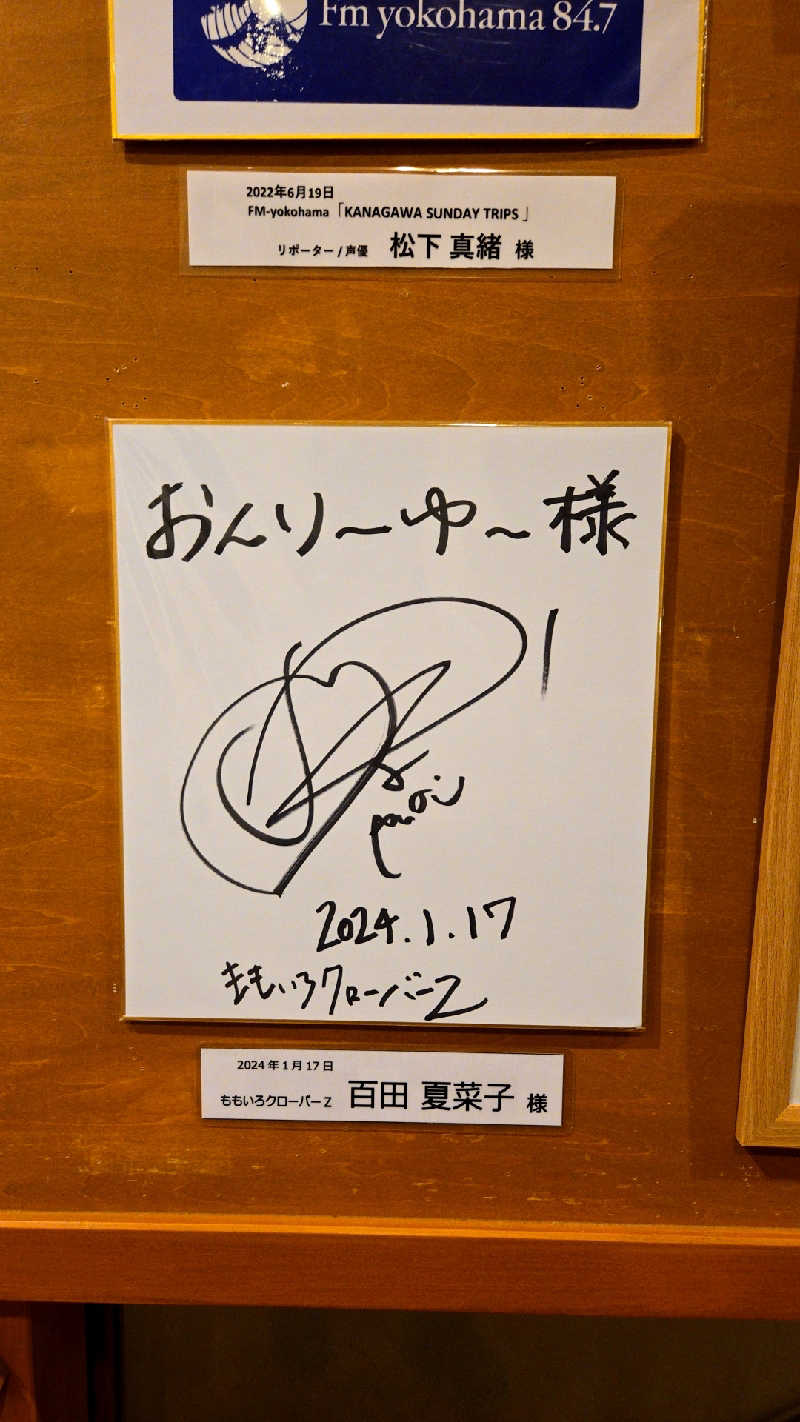 Fm yokohama 84.7
2022年6月19日
FM-yokohama「KANAGAWA SUNDAY TRIPS」
リポーター / 声優 松下 真緒 様
おんりーゆー様
2024.1.17
ももいろクローバーZ
2024年1月17日
ももいろクローバーZ 百田 夏菜子 様